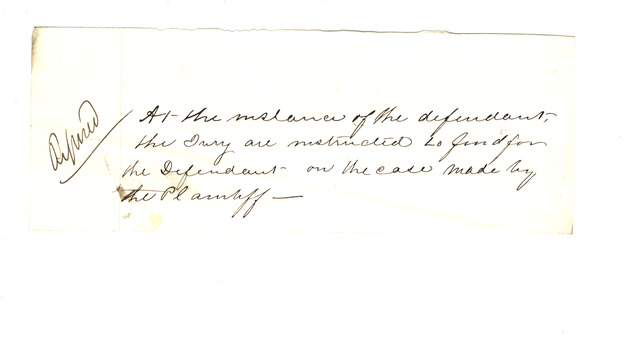 Refused
At the instance of the defendant,
the Jury are instructed to find for
the Defendant on the case made by
the Plaintiff —